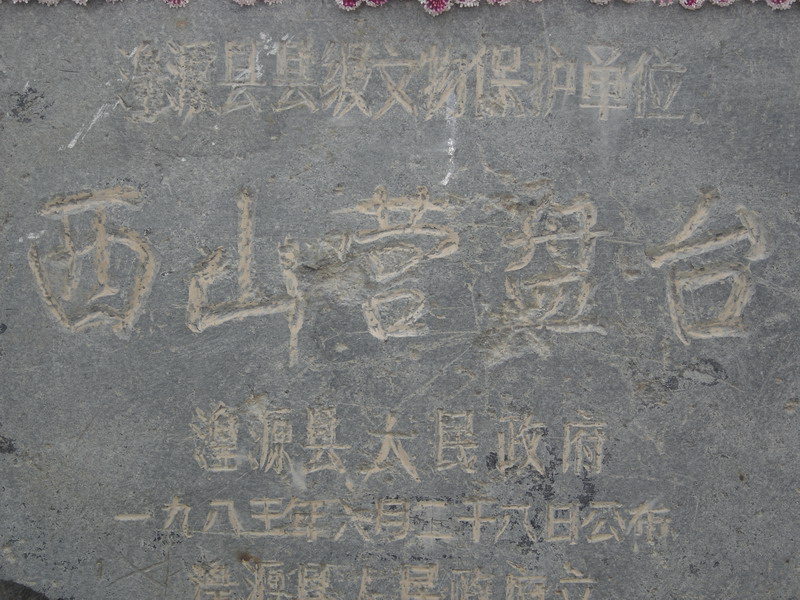 湟源县县级文物保护单位
西山营盘台
湟源县人民政府
一九八五年六月二十八日公布
湟源县人民政府立